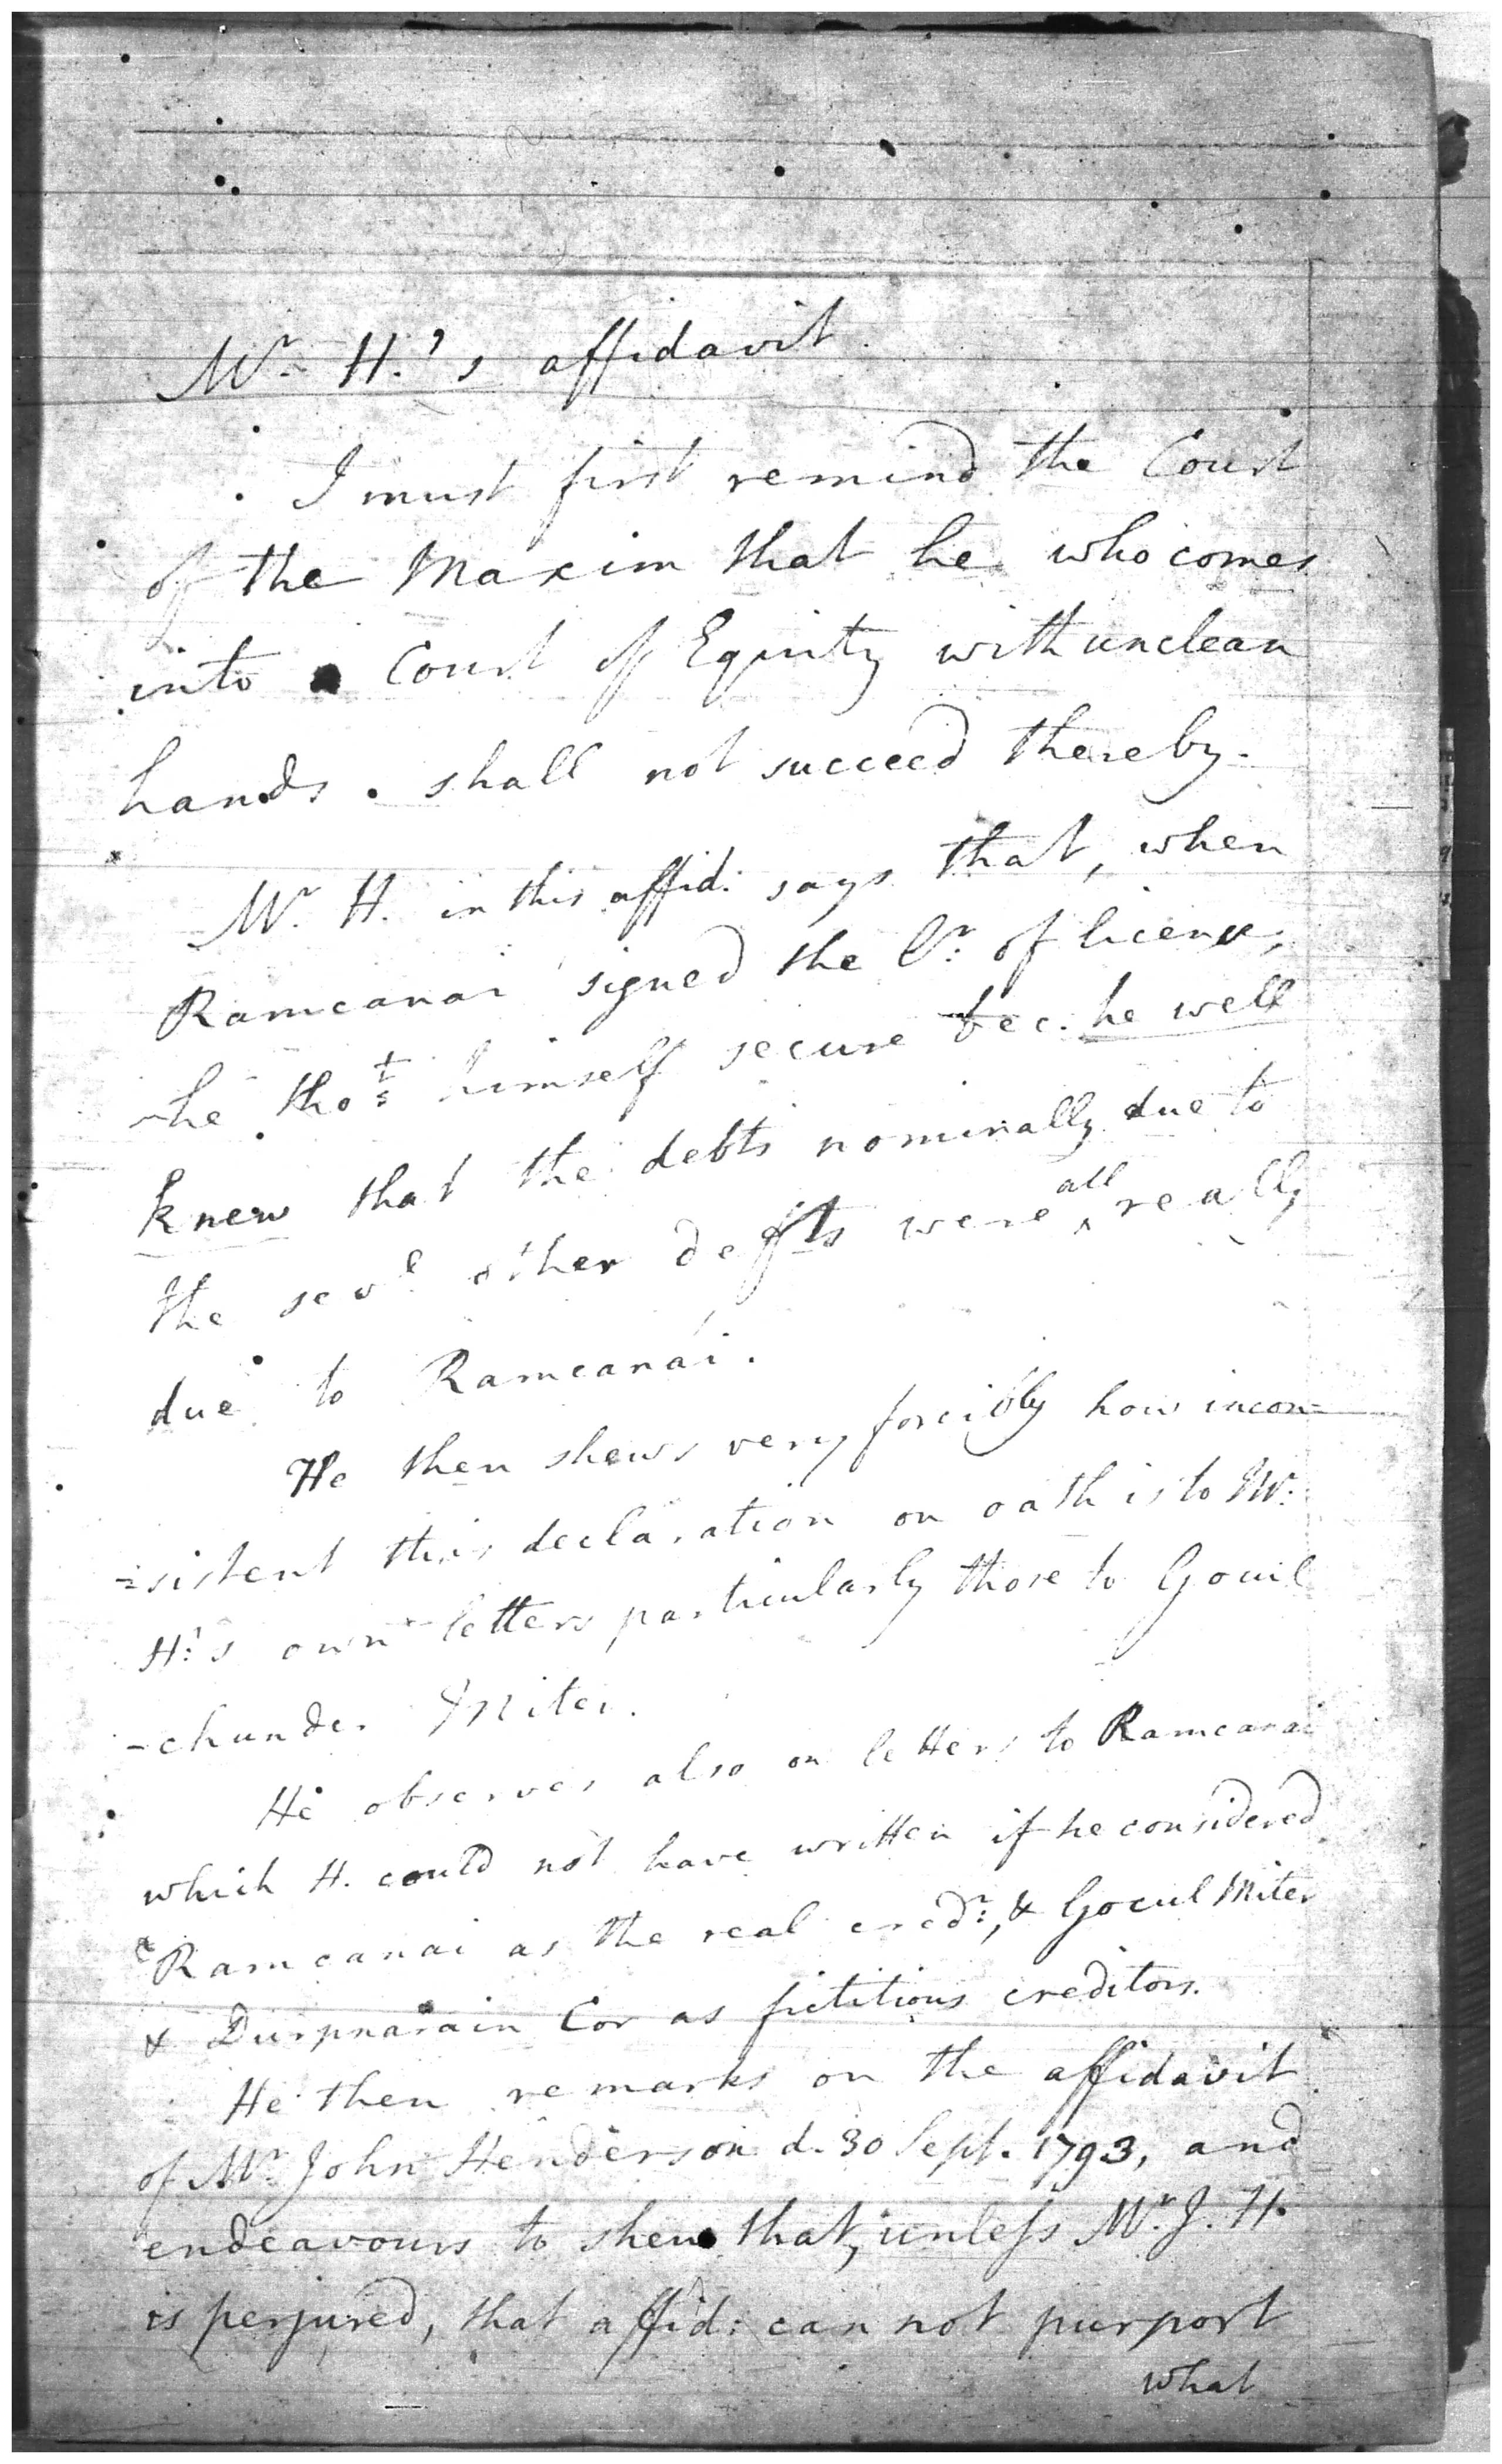 Mr. H.'s affidavit.
I must first remind the Court
of the Maxim that he who comes
into a Court of Equity with unclean
hands. shall not succeed thereby.
Mr. H. in this affid: says that, when
Ramcanai signed the lr: of license,
he thot: himself secure bec: he well
knew that the debts nominally due to
the sevl other defts were all really
due to Ramcanai.
He then shews very forcibly how incon=
=sistent this declaration on oath is to Mr:
H:'s own letters, particularly those to Gocul
-chunder Miter.
He observes also on letters to Ramcanai
which H. could not have written if he considered
Ramcanai as the real credr:, & Gocul Miter
& Durpnarain Cor as fictitious creditors.
He then remarks on the affidavit
of Mr John Henderson d. 30 Sept. 1793, and
endeavours to shew that, unless Mr. J. H.
is perjured, that affid: can not purport
what